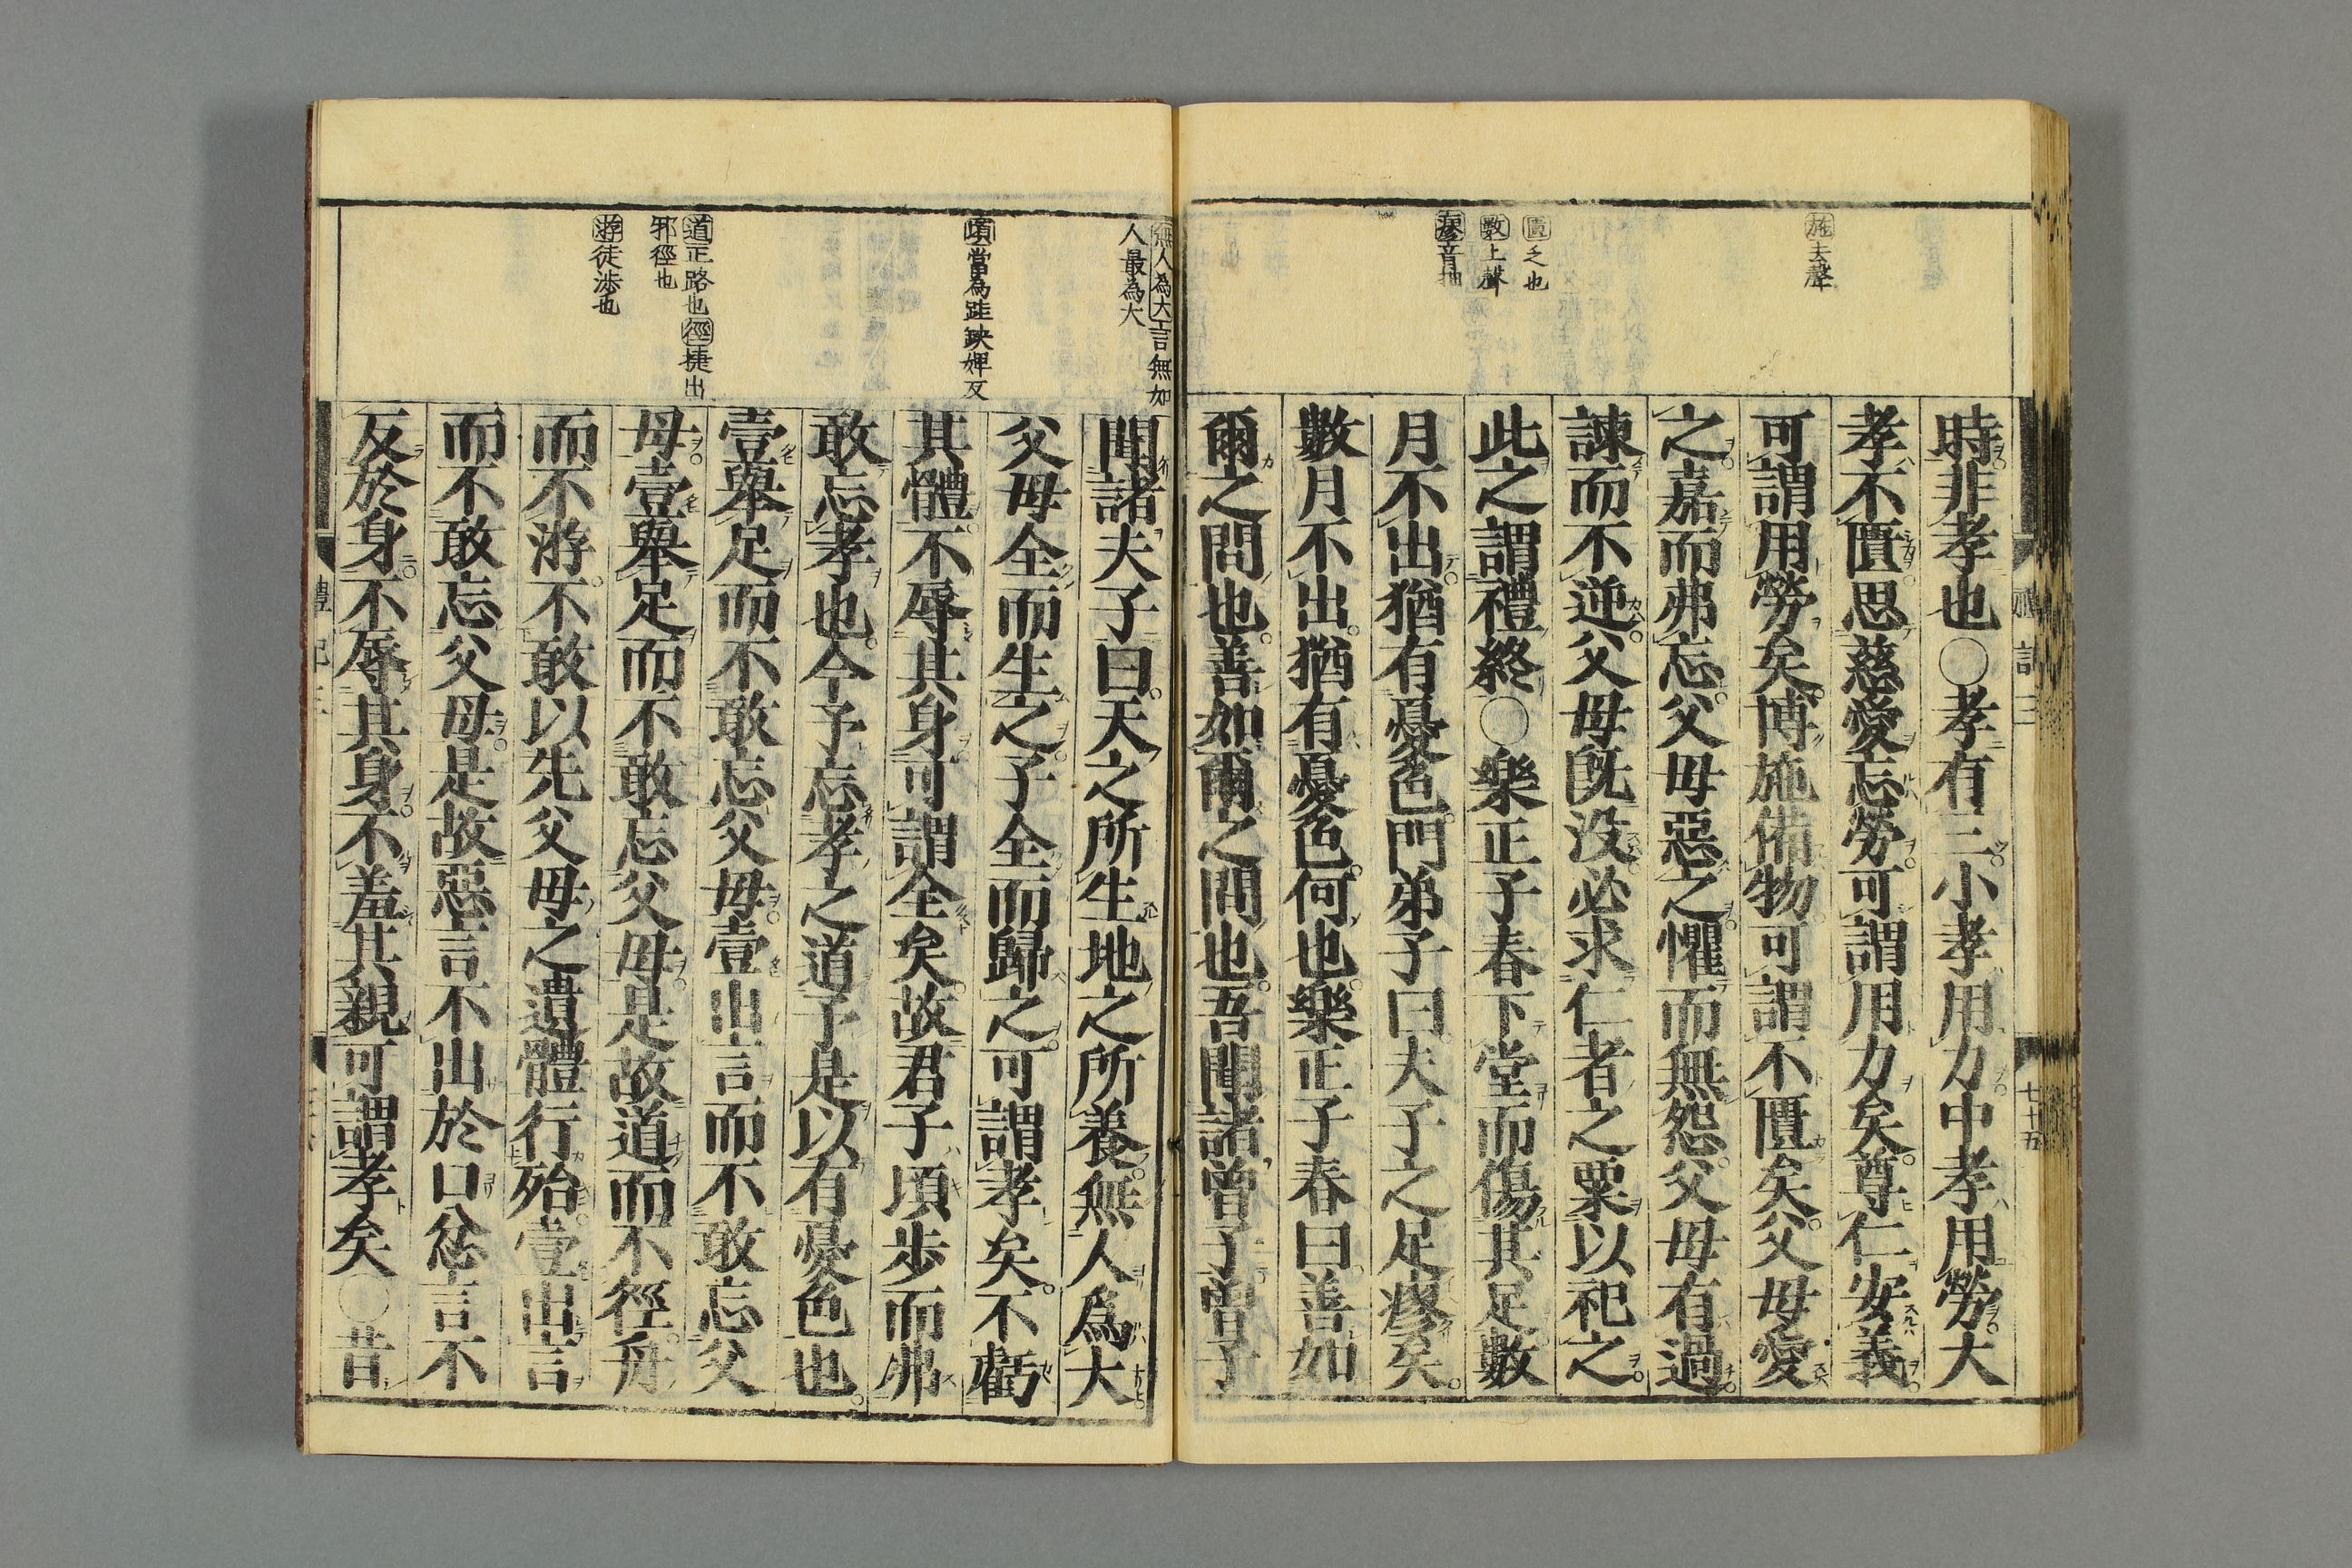 施去聲
匱乏也
數上聲
瘳音抽
時非孝也○孝有三小孝用力中孝用勞大
孝不匱思慈愛忘勞可謂用力矣尊仁安義
可謂用勞矣博施備物可謂不匱矣父母愛
之嘉而弗忘父母惡之懼而無怨父母有過
諫而不逆父母既没必求仁者之粟以祀之
此之謂禮終○樂正子春下堂而傷其足數
月不出猶有憂色門弟子曰夫子之足瘳矣
數月不出猶有憂色何也樂正子春曰善如
爾之問也善如爾之問也吾聞諸曾子曾子
禮記三
七十五
無人為大言無如
人最為大
頃當為跬缺婢反
道正路也徑捷出
邪徑也
游徒渉也
聞諸夫子曰天之所生地之所養無人爲大
父母全而生之子全而歸之可謂孝矣不虧
其體不辱其身可謂全矣故君子頃步而弗
敢忘孝也今予忘孝之道予是以有憂色也
壹舉足而不敢忘父母壹出言而不敢忘父
母壹舉足而不敢忘父母是故道而不徑舟
而不游不敢以先父母之遺體行殆壹出言
而不敢忘父母是故惡言不出於口忿言不
反於身不辱其身不羞其親可謂孝矣○昔
禮記三